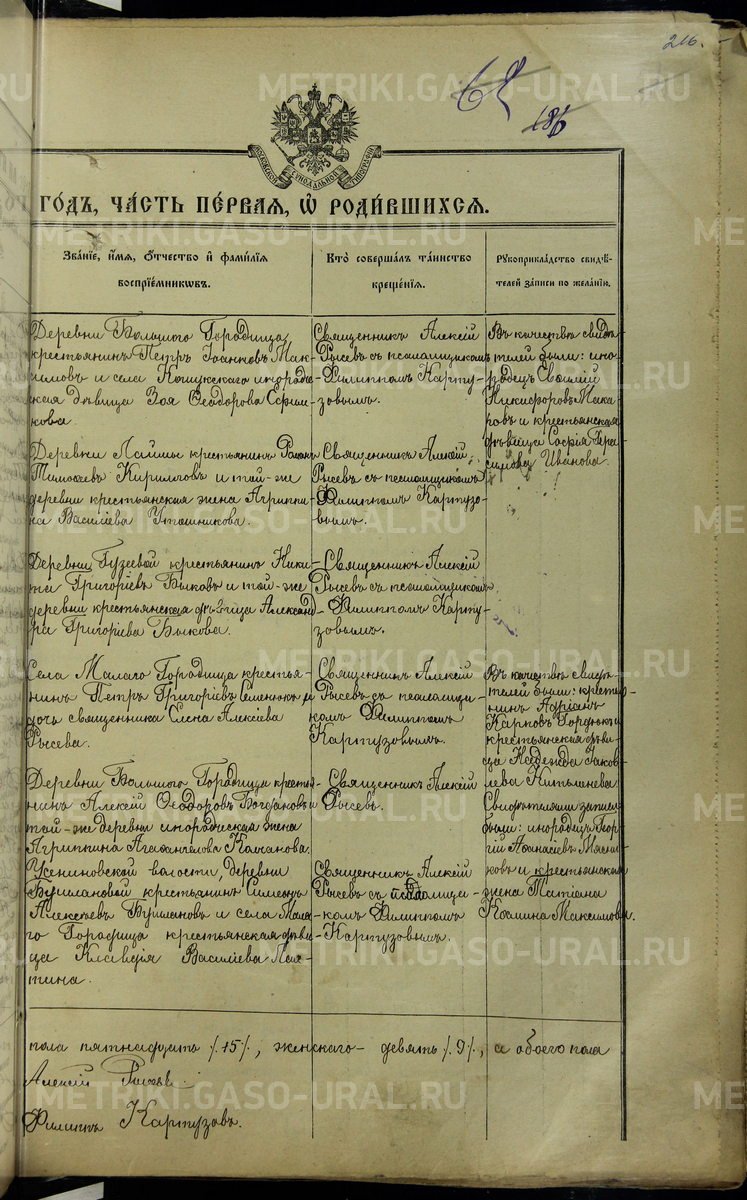 216.
186
МОСКОВСКОЙ СѴНОДАЛЬНОЙ ТИПОГРАФІИ
ГО́ДЪ, ЧА́СТЬ ПЕ́РВАЯ, Ѽ РОДИ́ВШИХСЯ.
ЗВА́НІЕ, И́МЯ, О́ТЧЕСТВО И́ ФАМИ́ЛІЯ
ВОСПРІЕ́МНИКѠВЪ.
КТО̀ СОВЕРША́ЛЪ ТА́ИНСТВО
КРЕЩЕ́НІЯ.
РУКОПРИКЛА́ДСТВО СВИДѢ́-
ТЕЛЕЙ ЗА́ПИСИ ПО ЖЕЛА́НІЮ.
Деревни Большого Городища
крестьянинъ Петръ Іоанновъ Мак-
симовъ и села Кошукскаго инородче-
ская дѣвица Зоя Ѳеодорова
Священникъ Алексій
Рысевъ съ псаломщикомъ
Филиппомъ Картузо-
зовымъ.
Въ качествѣ свидѣ-
телей были: ино-
родецъ
Никифоровъ Мака-
ровъ и крестьянская
дѣвица Софія Гера-
симова Иванова.
Деревни крестьянинъ
Тимоѳеевъ Кирилловъ и той-же
деревни крестьянская жена Агриппи-
на Василіева
Священникъ Алексій
Рысевъ съ псаломщикомъ
Филиппомъ Картузо-
вымъ.
Деревни Гузеевой крестьянинъ Ники-
та Григоріевъ Быковъ и той-же
деревни крестьянская дѣвица Александ-
ра Григоріева Быкова.
Священникъ Алексій
Рысевъ съ псаломщикомъ
Филиппомъ Карту-
зовымъ.
Села Малаго Городища крестья-
нинъ Петръ Григоріевъ и
дочь священника Елена Алексіева
Рысева.
Священникъ Алексій
Рысевъ съ псаломщи-
комъ Филиппомъ
Картузовымъ.
Въ качествѣ свидѣ-
телей были: крестья-
нинъ Адріанъ
Карповъ и
крестьянская дѣви-
ца Надежда Іаков-
лева
Деревни Большого Городища крестья-
нинъ Алексій Ѳеодоровъ Богдановъ и
той-же деревни инородческая жена
Агриппина Агаѳангелова
Священникъ Алексій
Рысевъ.
Свидѣтелями записи
были: инородецъ Геор-
гій Аѳанасіевъ Мягки-
ковъ и крестьянская
жена Татіана
Космина Максимова.
волости, деревни
крестьянинъ Симеонъ
Алексеевъ и села Мала-
го Городища крестьянская дѣви-
ца Клавдія Василіева Лап-
тина.
Священникъ Алексій
Рысевъ съ псаломщи-
комъ Филиппомъ
Картузовымъ.
пола пятнадцать /15/, женскаго - девять /9/, а обоего пола
Алексій Рысевъ.
Филиппъ Картузовъ.
METRIKI.GASO-URAL.RU